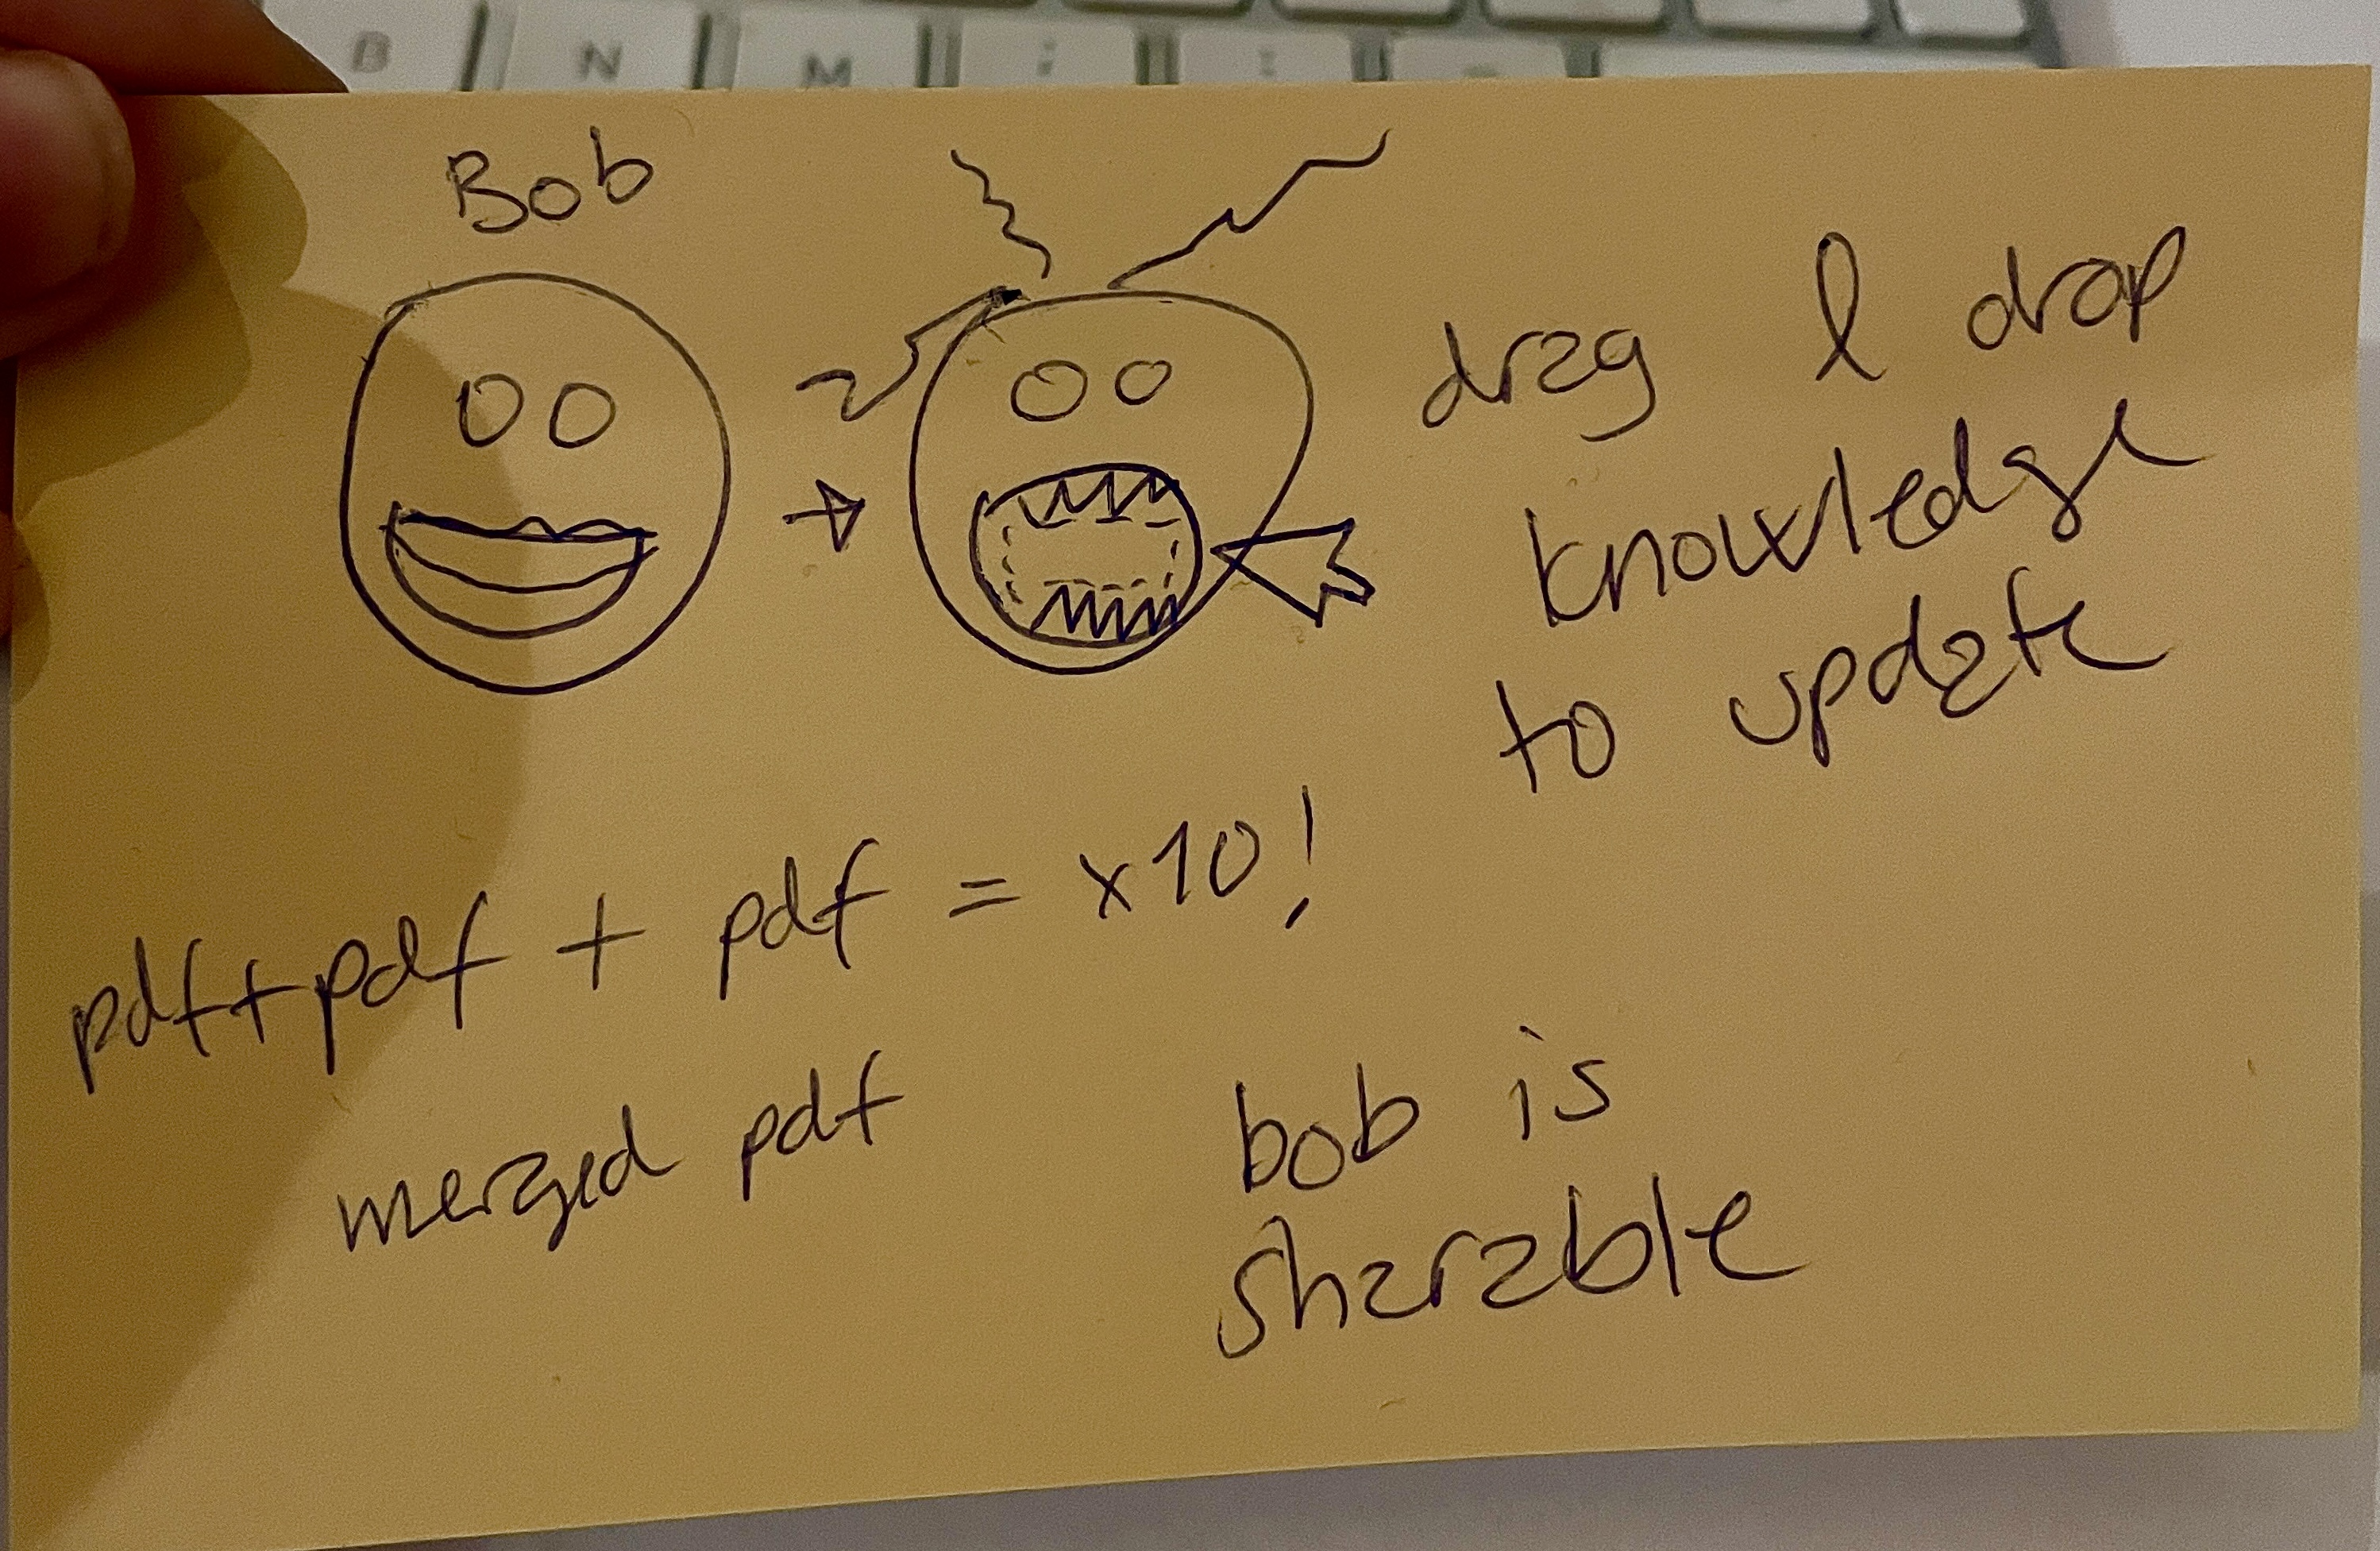 B N M ; :
Bob
drag & drop
knowledge
to update
pdf + pdf + pdf = x10!
merged pdf
bob is
sharable